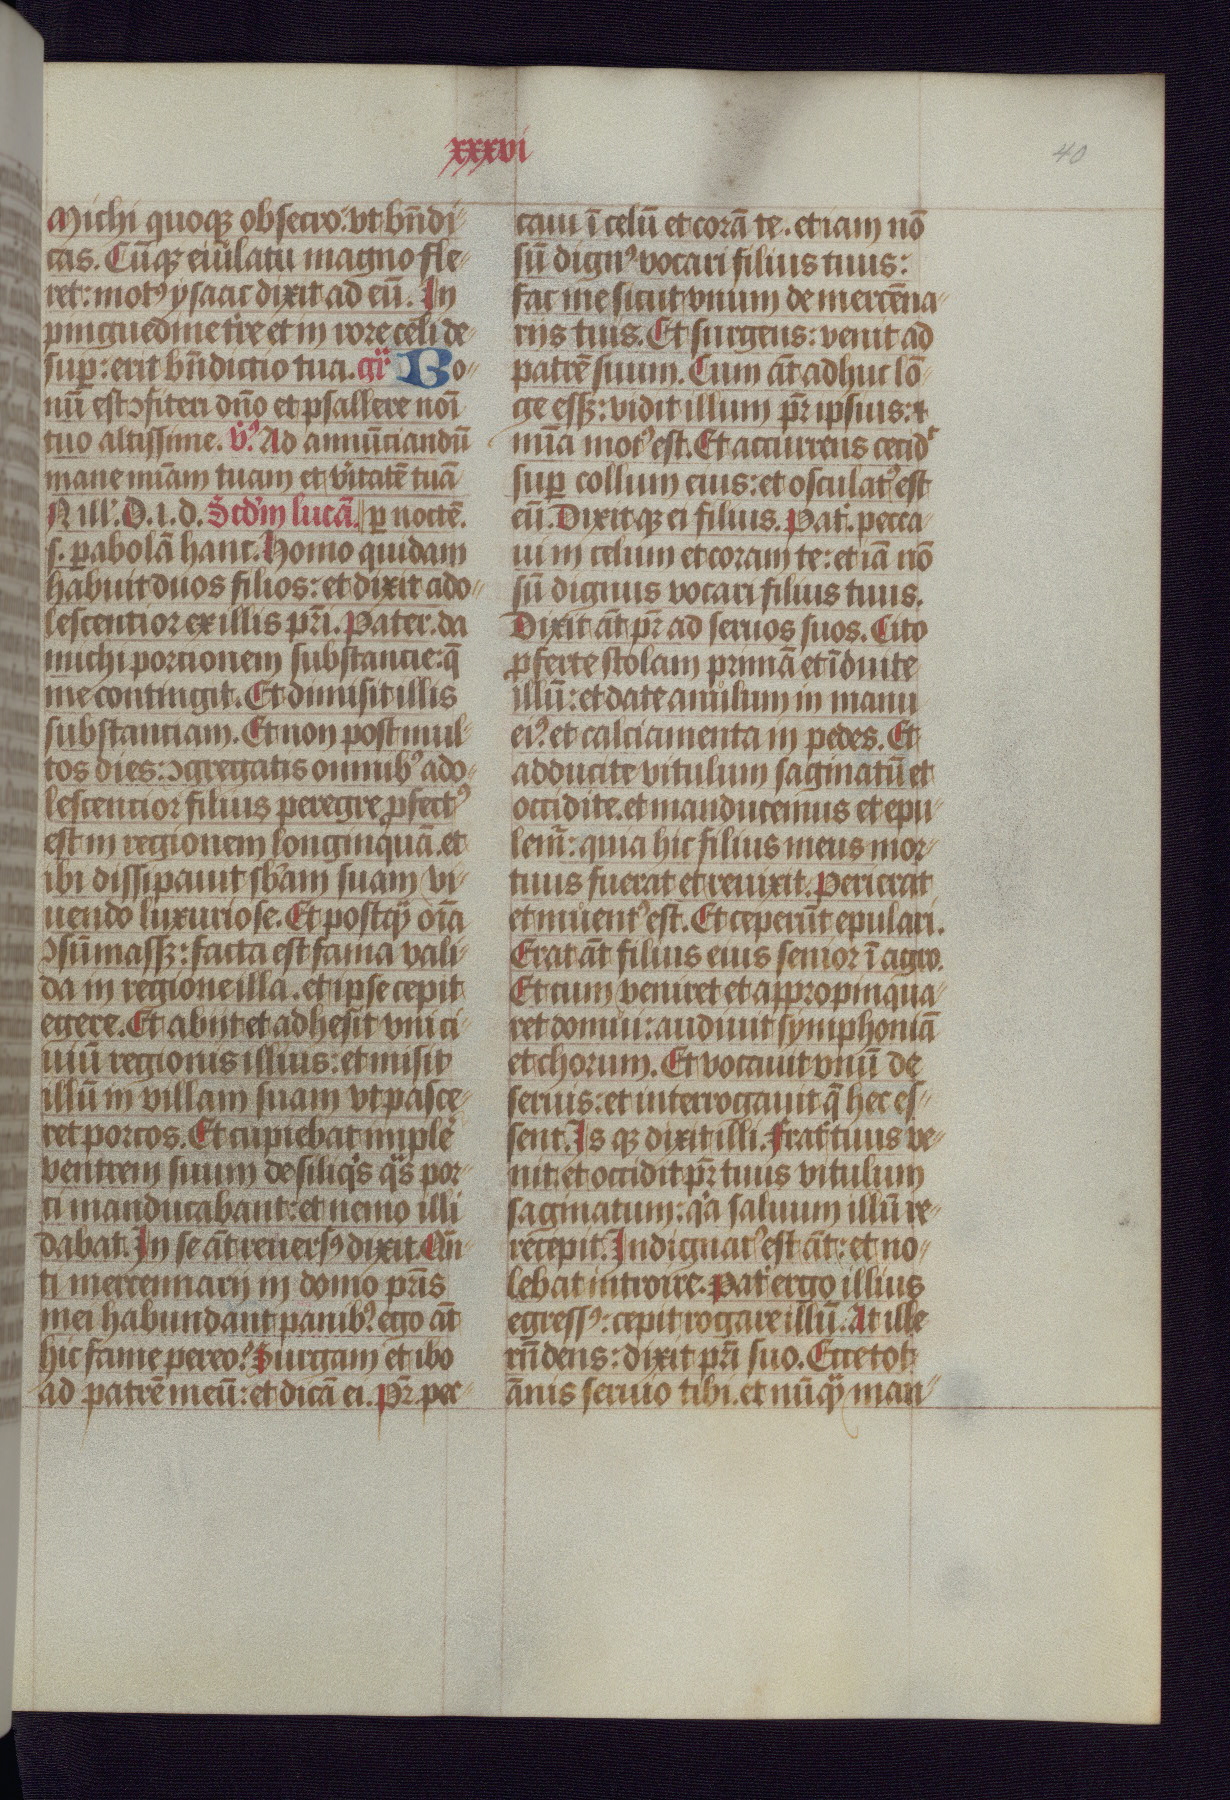 xxxvi
40
Michi quoqꝫ obsecro: vt bn̄di⸗
cas. Cūqꝫ eiulatu magno fle⸗
ret: motꝰ ysaac dixit ad eū. In
pinguedine tr̄e et in rore celi de⸗
suꝑ: erit bn̄dictio tua. gr̄ Bo⸗
nū est ꝯfiteri dn̄o et psallere noī
tuo altissime. v̄. Ad annūciandū
mane miam̄ tuam et v̄itatē tuā
N ill'. D. i. d. Scd̄m lucā. ꝑ noctē.
s. ꝑabolā hanc. Homo quidam
habuit duos filios: et dixit ado⸗
lescentior ex illis pr̄i. Pater. da
michi portionem substantie: q̄
me contingit. Et diuisit illis
substantiam. Et non post mul⸗
tos dies: ꝯgregatis omnibꝰ ado⸗
lescentior filius peregre ꝓfectꝰ
est in regionem longinquā. et
ibi dissipauit sb̄am suam vi⸗
uendo luxuriose. Et postqꝫ oīa
ꝯsūmassꝫ: facta est fama vali⸗
da in regione illa. et ipse cepit
egere. Et abiit et adhesit vni ci⸗
uiū regionis illius: et misit
illū in villam suam vt pasce⸗
ret porcos. Et cupiebat imple᷑
ventrem suum de siliqⁱs qᵃs por⸗
ci manducabant: et nemo illi
dabat. In se āt reuersꝰ dixit. Qn̄⸗
ti mercennarij in domo pr̄is
mei habundant panibꝰ. ego āt
hic fame pereo? Surgam et ibo
ad patrē meū: et dicā ei. Pr̄. pec⸗
caui ī celū et corā te. et iam nō
sū dignꝰ vocari filius tuus:
fac me sicut vnum de mercēna⸗
rijs tuis. Et surgens: venit ad
patrē suum. Cum āt adhuc lō⸗
ge essꝫ: vidit illum pr̄ ipsius: ⁊
mīa motꝰ est. Et accurrens cecidᵗ
suꝑ collum eius: et osculatꝰ est
eū. Dixitqꝫ ei filius. Pat᷑. pecca⸗
ui in celum et coram te: et iā nō
sū dignus vocari filius tuus.
Dixit āt pr̄ ad seruos suos. Cito
ꝓferte stolam primā et īduite
illū: et date anulum in manu
eiꝰ. et calciamenta in pedes. Et
adducite vitulum saginatū et
occidite. et manducemus et epu⸗
lem᷑: quia hic filius meus mor⸗
tuus fuerat et reuixit. Perierat
et inuentꝰ est. Et ceperūt epulari.
Erat āt filius eius senior ī agro.
Et cum veniret et appropinqua⸗
ret domui: audiuit symphoniā
et chorum. Et vocauit vnū de
seruis: et interrogauit q̄ hec es⸗
sent. Is qꝫ dixit illi. Frat᷑ tuus ve⸗
nit: et occidit pr̄ tuus vitulum
saginatum: qⁱa saluum illū re⸗
recepit. Indignatꝰ est āt: et no⸗
lebat introire. Pat᷑ ergo illius
egressꝰ: cepit rogare illū. At ille
rn̄dens: dixit pr̄i suo. Ecce tot
ānis seruio tibi. et nūqꝫ man⸗